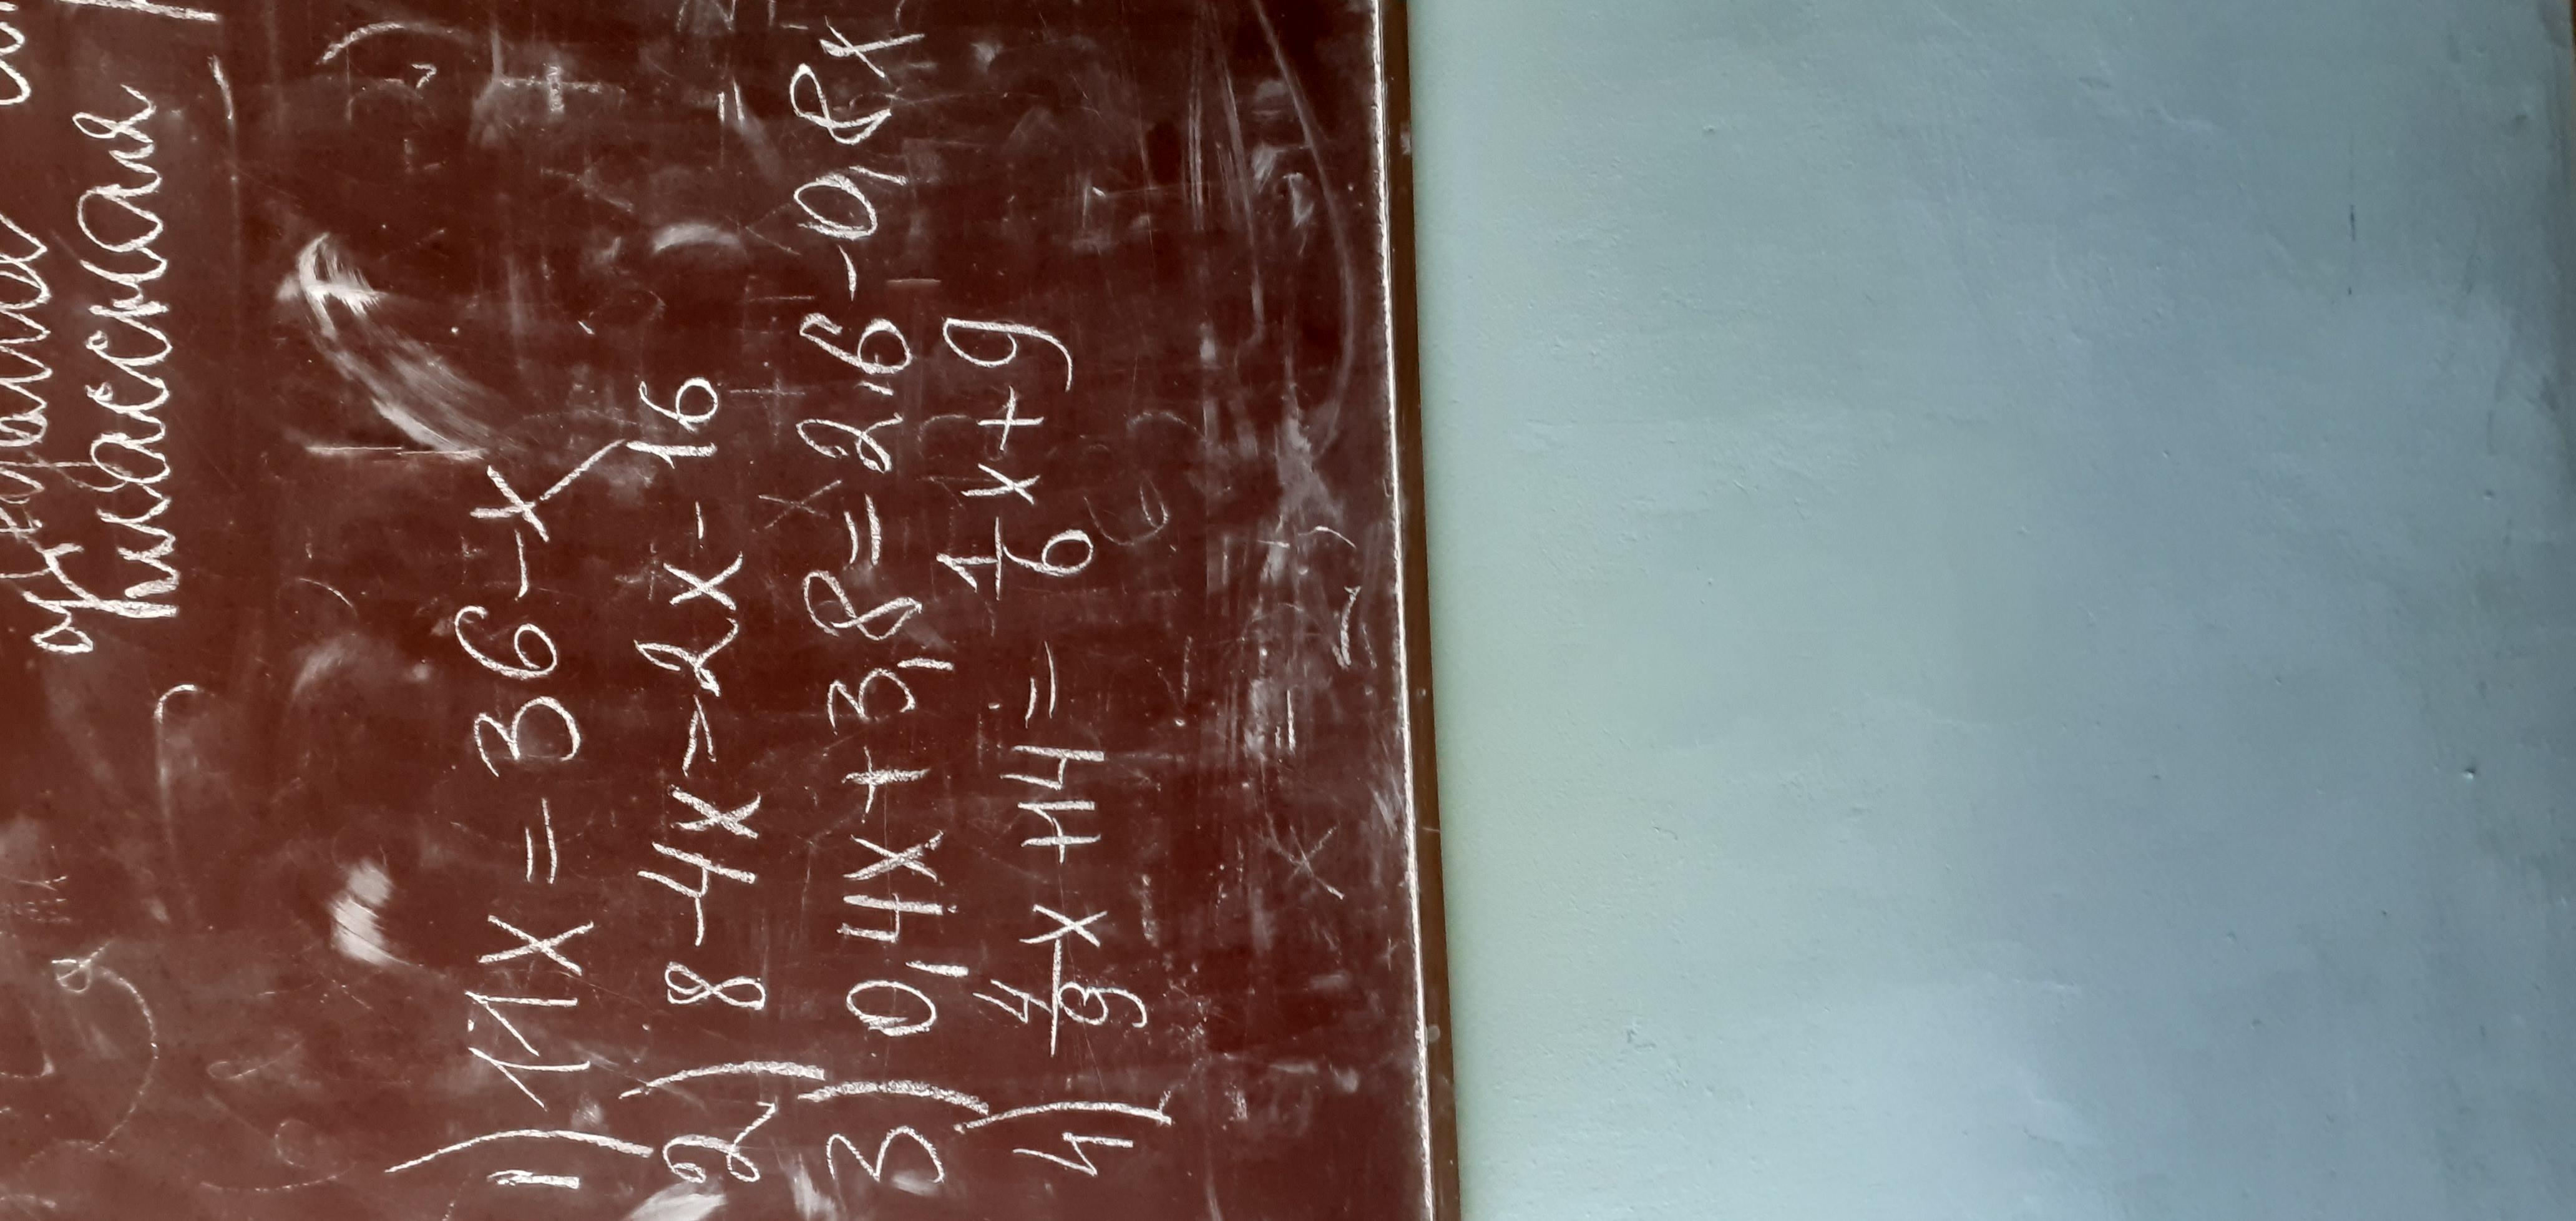 Классная
1) 11x = 36 - x
2) 8 - 4x = 2x - 16
3) 0,4x + 3,8 = 2,6 - 0,8x
4) 4/9 x + 14 = 1/6 x + 9